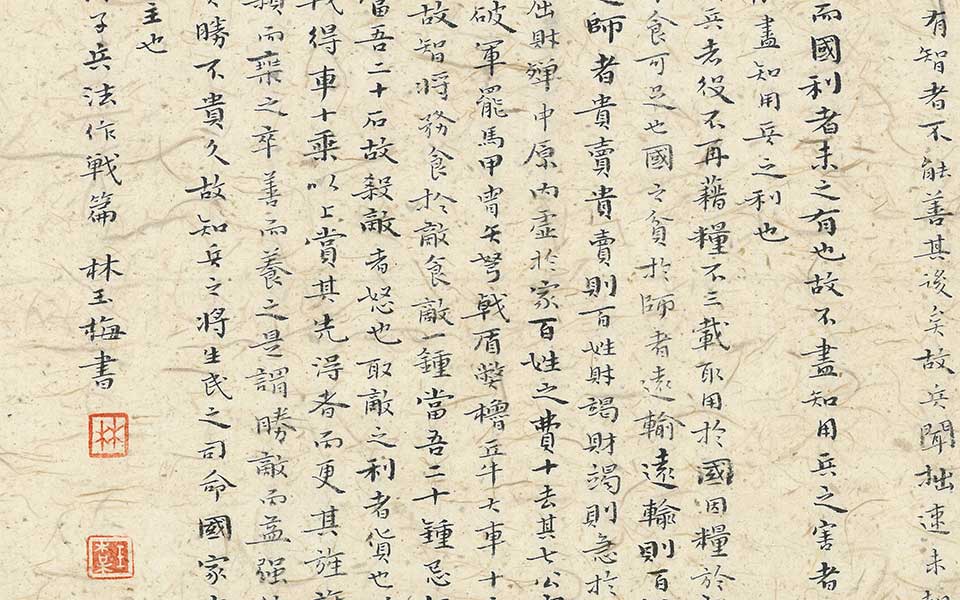 有智者不能善其後矣故兵聞拙速未
而國利者未之有也故不盡知用兵之害者
盡知用兵之利也
兵者役不再藉糧不三載取用於國因糧於
食可足也國之貧於師者遠輸遠輸則百
師者貴賣貴賣則百姓財竭財竭則急於
屈財殫中原內虛於家百姓之費十去其七公
破軍罷馬甲冑矢弩戟盾蔽櫓丘牛大車十
故智將務食於敵食敵一鍾當吾二十鍾忌
當吾二十石故殺敵者怒也取敵之利者貨也
戰得車十乘以上賞其先得者而更其旌旗
雜而乘之卒善而養之是謂勝敵而益强
勝不貴久故知兵之將生民之司命國家
主也
子兵法作戰篇 林玉梅書
林